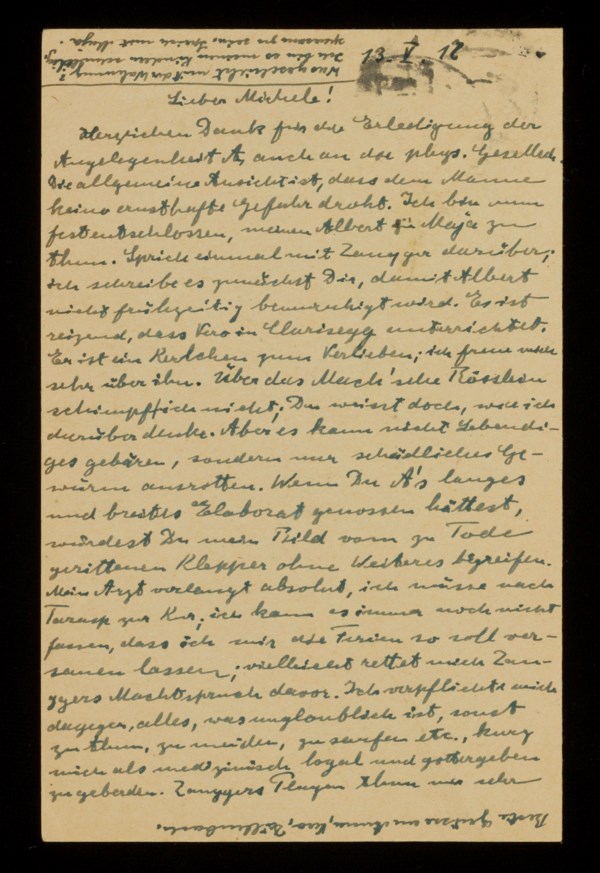 13. V. 17
Lieber Michele!
Herzlichen Dank für die Erledigung der
Angelegenheit A, auch an die phys. Gesellsch.
Die allgemeine Ansicht ist, dass dem Manne
keine ernsthafte Gefahr droht. Ich bin nun
fest entschlossen, meinen Albert zu Maja zu
thun. Sprich einmal mit Zangger darüber;
ich schreibe es zunächst Dir, damit Albert
nicht frühzeitig beunruhigt wird. Es ist
reizend, dass Vero in Glarisegg unterrichtet.
Er ist ein Kerlchen zum Verlieben; ich freue mich
sehr über ihn. Über das Mach'sche Rösslein
schimpf ich nicht; Du weisst doch, wie ich
darüber denke. Aber es kann nicht Lebendi-
ges gebären, sondern nur schädliches Ge-
würm ausrotten. Wenn Du A's langes
und breites Elaborat genossen hättest,
würdest Du mein Bild vom zu Tode
gerittenen Klepper ohne Weiteres begreifen.
Mein Arzt verlangt absolut, ich müsse nach
Tarasp zur Kur; ich kann es immer noch nicht
fassen, dass ich mir die Ferien so soll ver-
sauen lassen; vielleicht rettet mich Zan-
ggers Machtspruch davor. Ich verpflichte mich
dagegen, alles, was unglaublich ist, sonst
zu thun, zu meiden, zu saufen etc., kurz
mich als medizinisch loyal und gottergeben
zu geberden. Zanggers Plagen thun mir sehr
Beste Grüsse an Anna, Vero,
Was geschieht mit der Wohnung?
Ich bin es meinen Kindern schuldig,
sparsam zu sein. Sprich mit Maja.